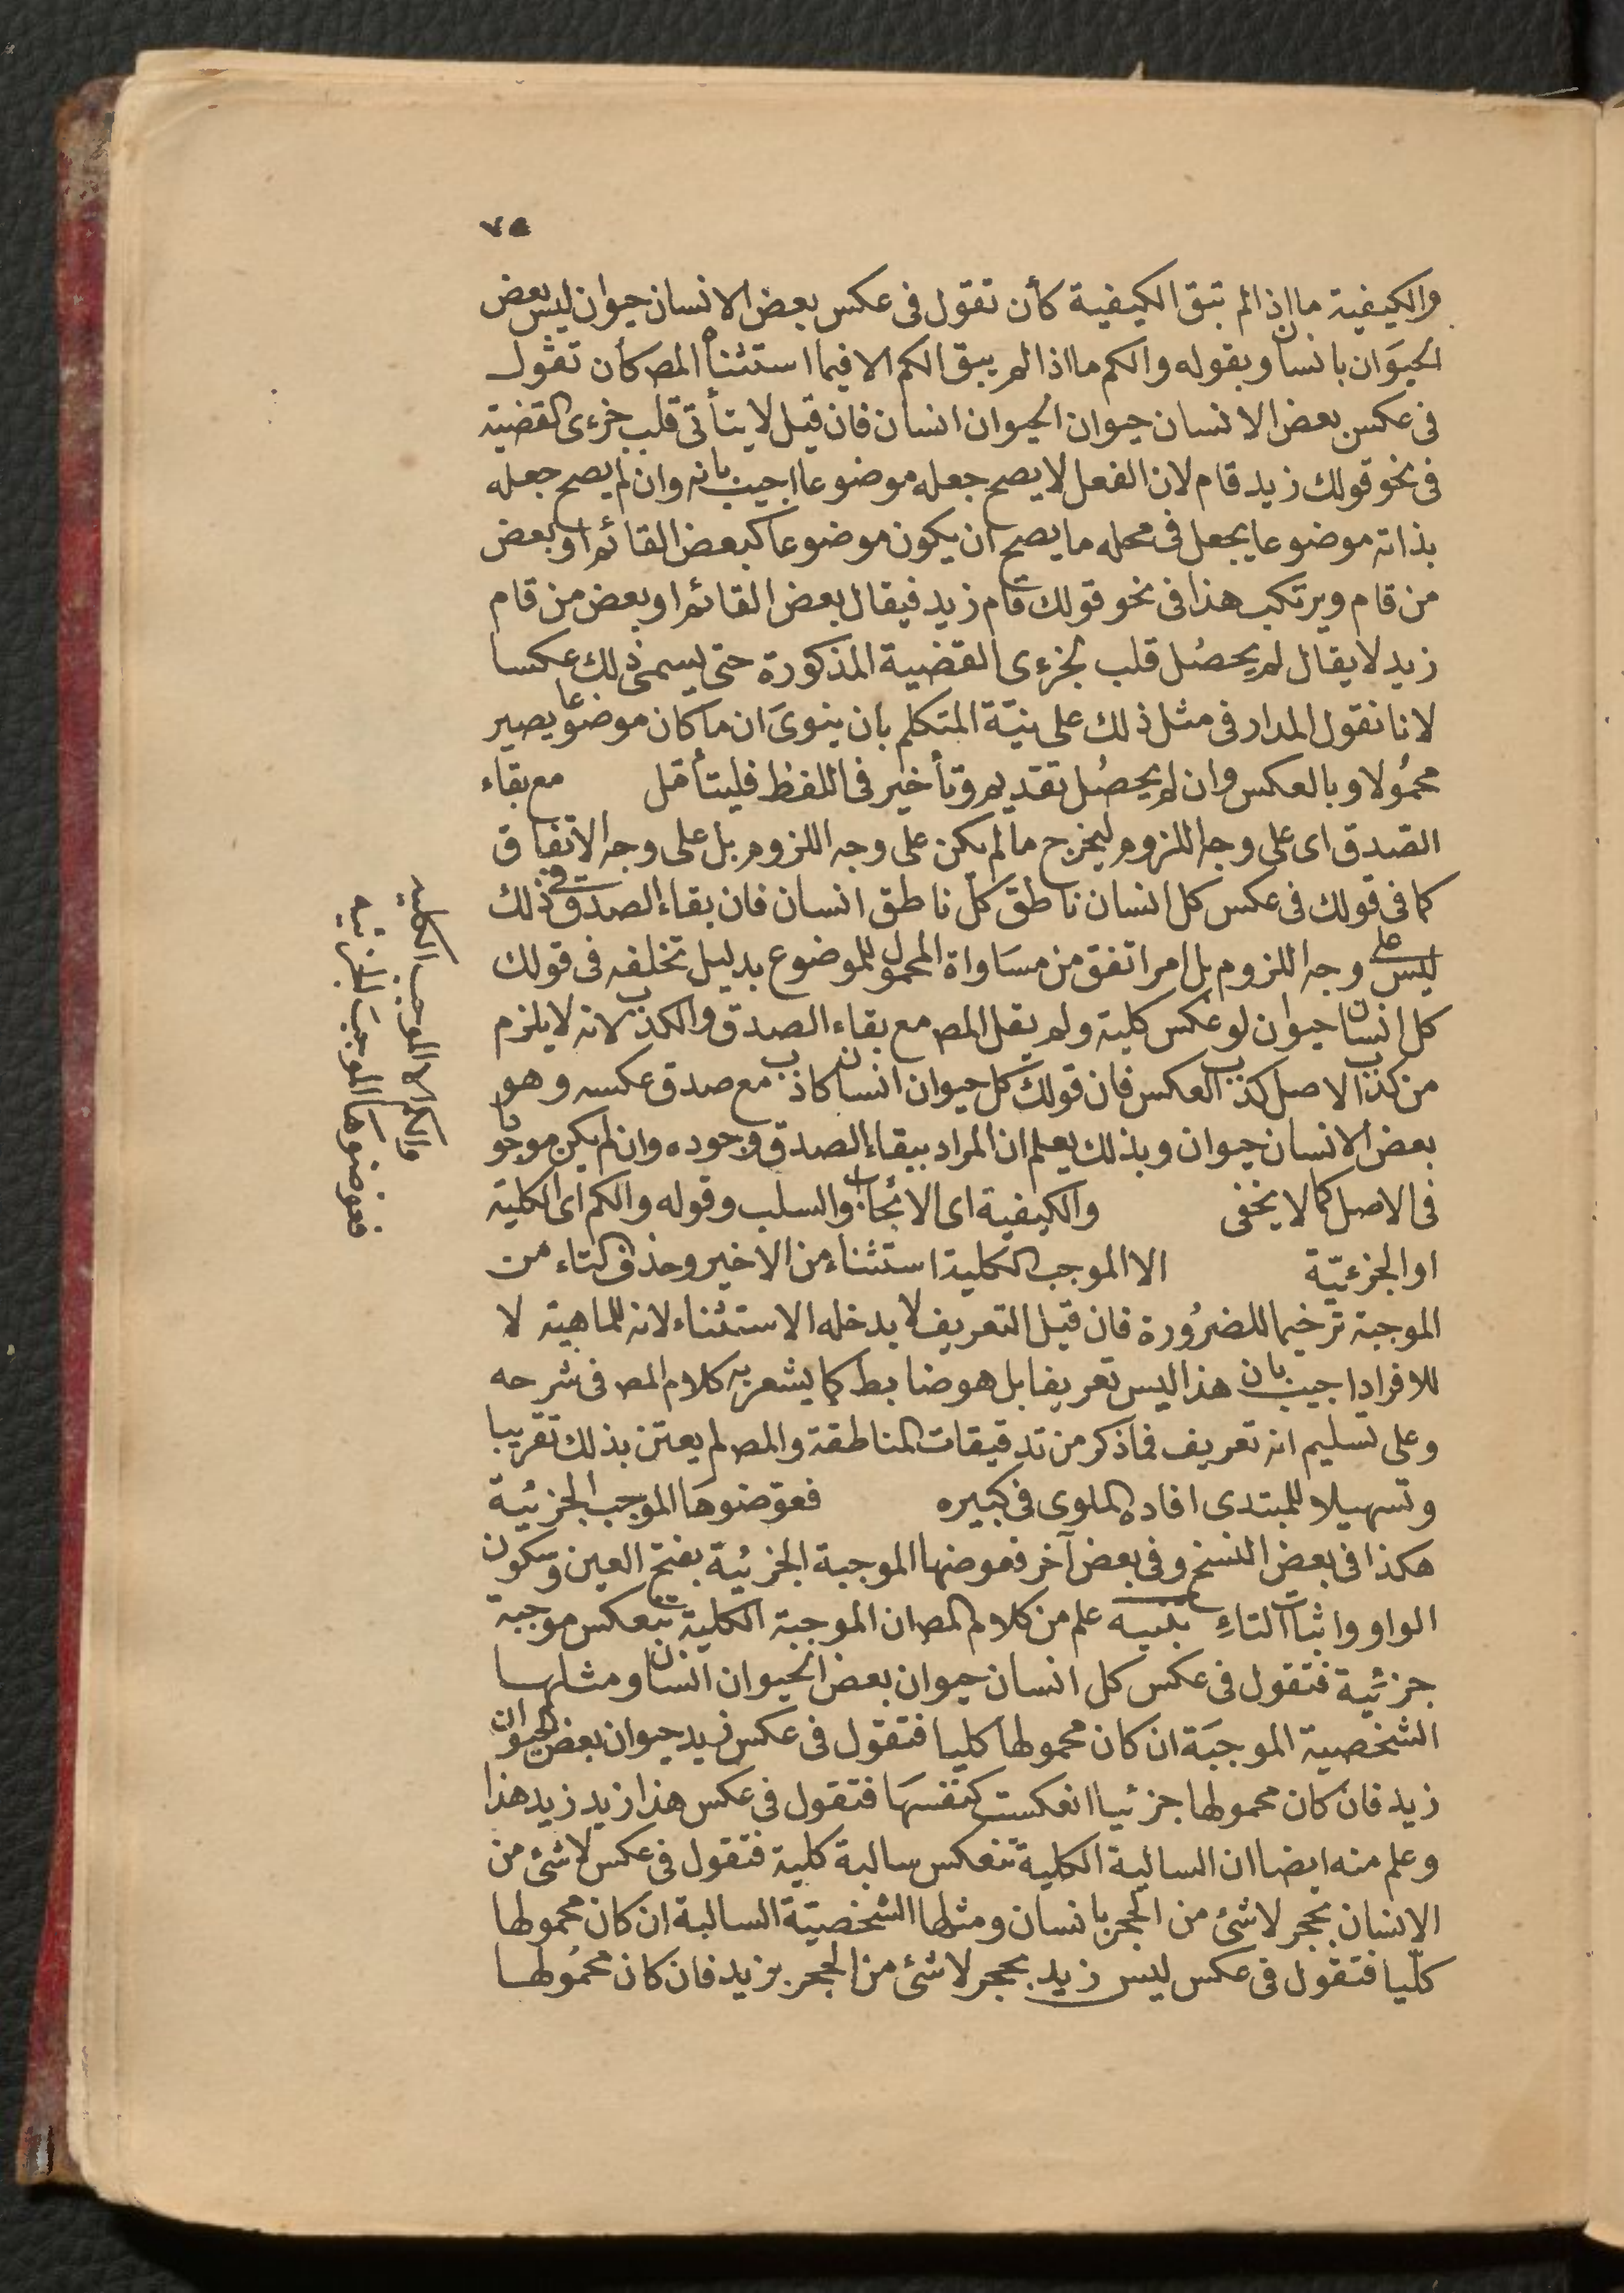 ٧٥
والكيفية ما اذا لم تبق الكيفية كأن تقول فى عكس بعض الانسان حيوان ليس بعض
الحيوان بانسان وبقوله والكم ما اذا لم يبق الكم الا فيما استثناه المص كأن تقول
فى عكس بعض الانسان حيوان الحيوان انسان فان قيل لا يتأتى قلب جزءى القضية
فى نحو قولك زيد قام لان الفعل لا يصح جعله موضوعا اجيب بانه وان لم يصح جعله
بذاته موضوعا يجعل فى محله ما يصح ان يكون موضوعا كبعض القائم او بعض
من قام ويرتكب هذا فى نحو قولك قام زيد فيقال بعض القائم او بعض من قام
زيد لا يقال لم يحصل قلب لجزءى القضية المذكورة حتى يسمى ذلك عكسا
لانا نقول المدار فى مثل ذلك على نيّة المتكلم بان ينوى ان ما كان موضوعا يصير
محمولا وبالعكس وان لم يحصل تقديم وتأخير فى اللفظ فليتأمل مع بقاء
الصدق اى على وجه اللزوم ليخرج ما لم يكن على وجه اللزوم بل على وجه الاتفاق
كما فى قولك فى عكس كل انسان ناطق كل ناطق انسان فان بقاء الصدق فى ذلك
ليس على وجه اللزوم بل امر اتفق من مساواة المحمول للموضوع بدليل تخلفه فى قولك
كل انسان حيوان لو عكس كلية ولم يقل المص مع بقاء الصدق والكذب لانه لا يلزم
من كذب الاصل كذب العكس فان قولك كل حيوان انسان كاذب مع صدق عكسه وهو
بعض الانسان حيوان وبذلك يعلم ان المراد ببقاء الصدق وجوده وان لم يكن موجودا
فى الاصل كما لا يخفى والكيفية اى الايجاب والسلب وقوله والكم اى الكلية
او الجزئيّة الا الموجب الكلية استثناء من الاخير وحذف التاء من
الموجبة ترخيما للضرورة فان قيل التعريف لا يدخله الاستثناء لانه للماهية لا
للافراد اجيب بان هذا ليس تعريفا بل هو ضابط كما يشعر به كلام المص فى شرحه
وعلى تسليم انه تعريف فما ذكر من تدقيقات المناطقة والمص لم يعتن بذلك تقريبا
وتسهيلا للمبتدى افاده الملوى فى كبيره فعوضوها الموجب الجزئية
هكذا فى بعض النسخ وفى بعض آخر فعوضها الموجبة الجزئية بفتح العين وسكون
الواو واثبات التاءِ تنبيه علم من كلام المص ان الموجبة الكلية تنعكس موجبة
جزئية فتقول فى عكس كل انسان حيوان بعض الحيوان انسان ومثلها
الشخصية الموجبة ان كان محمولها كليا فتقول فى عكس زيد حيوان بعض الحيوان
زيد فان كان محمولها جزئيا انعكست كنفسها فتقول فى عكس هذا زيد زيد هذا
وعلم منه ايضا ان السالبة الكلية تنعكس سالبة كلية فتقول فى عكس لا شئ من
الانسان بحجر لا شئ من الحجر بانسان ومثلها الشخصيّة السالبة ان كان محمولها
كلّيا فتقول فى عكس ليس زيد بحجر لا شئ من الحجر بزيد فان كان محمولها
والكم الا الموجب الكليه
فعوضوها الموجب الجزئيه